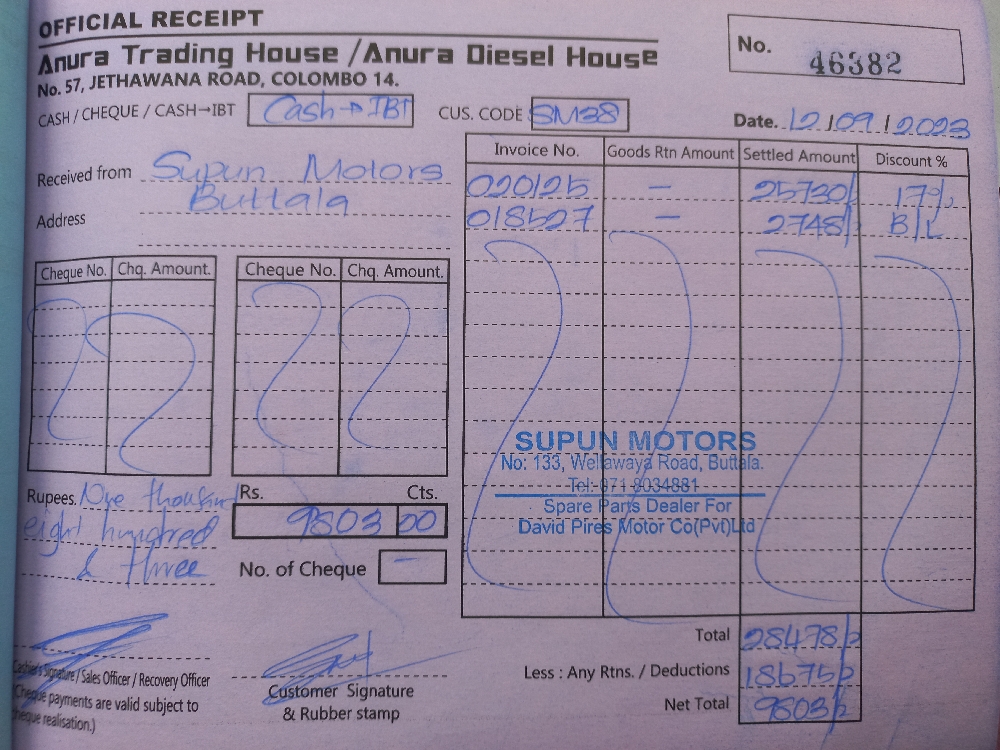 OFFICIAL RECEIPT
Anura Trading House / Anura Diesel House
No. 57, JETHAWANA ROAD, COLOMBO 14.
No. 46382
CASH / CHEQUE / CASH→IBT Cash → IBT CUS. CODE SM38
Date. 12/09/2023
Received from Supun Motors
Address Buttala
Invoice No. Goods Rtn Amount Settled Amount Discount %
020125 — 25730/ 17%
018527 — 2748/ B/L
Cheque No. Chq. Amount. Cheque No. Chq. Amount.
SUPUN MOTORS
No: 133, Wellawaya Road, Buttala.
Tel: 071 8034881
Spare Parts Dealer For
David Pires Motor Co(Pvt)Ltd
Rupees. Nine thousand
eight hundred
& three
Rs. Cts.
9803 00
No. of Cheque —
Total 28478/
Less : Any Rtns. / Deductions 18675/
Net Total 9803/
Cashier's Signature / Sales Officer / Recovery Officer
(Cheque payments are valid subject to
cheque realisation.)
Customer Signature
& Rubber stamp